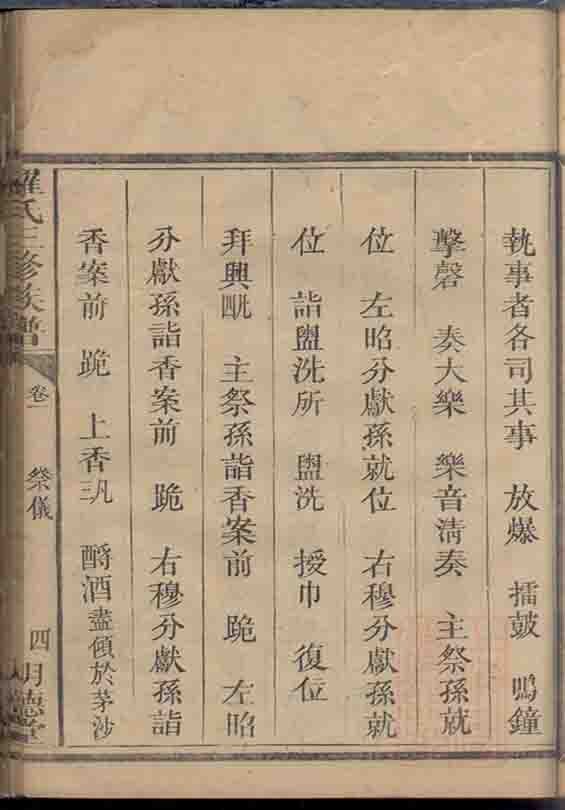 執事者各司其事　放爆　擂鼓　鳴鐘
擊磬　奏大樂　樂音淸奏　主祭孫就
位　左昭分獻孫就位　右穆分獻孫就
位　詣盥洗所　盥洗　授巾　復位
拜興四凡　主祭孫詣香案前　跪　左昭
分獻孫詣香案前　跪　右穆分獻孫詣
香案前　跪　上香三凡　酹酒盡傾於茅沙
羅氏三修族譜　卷一　祭儀　四　明德堂